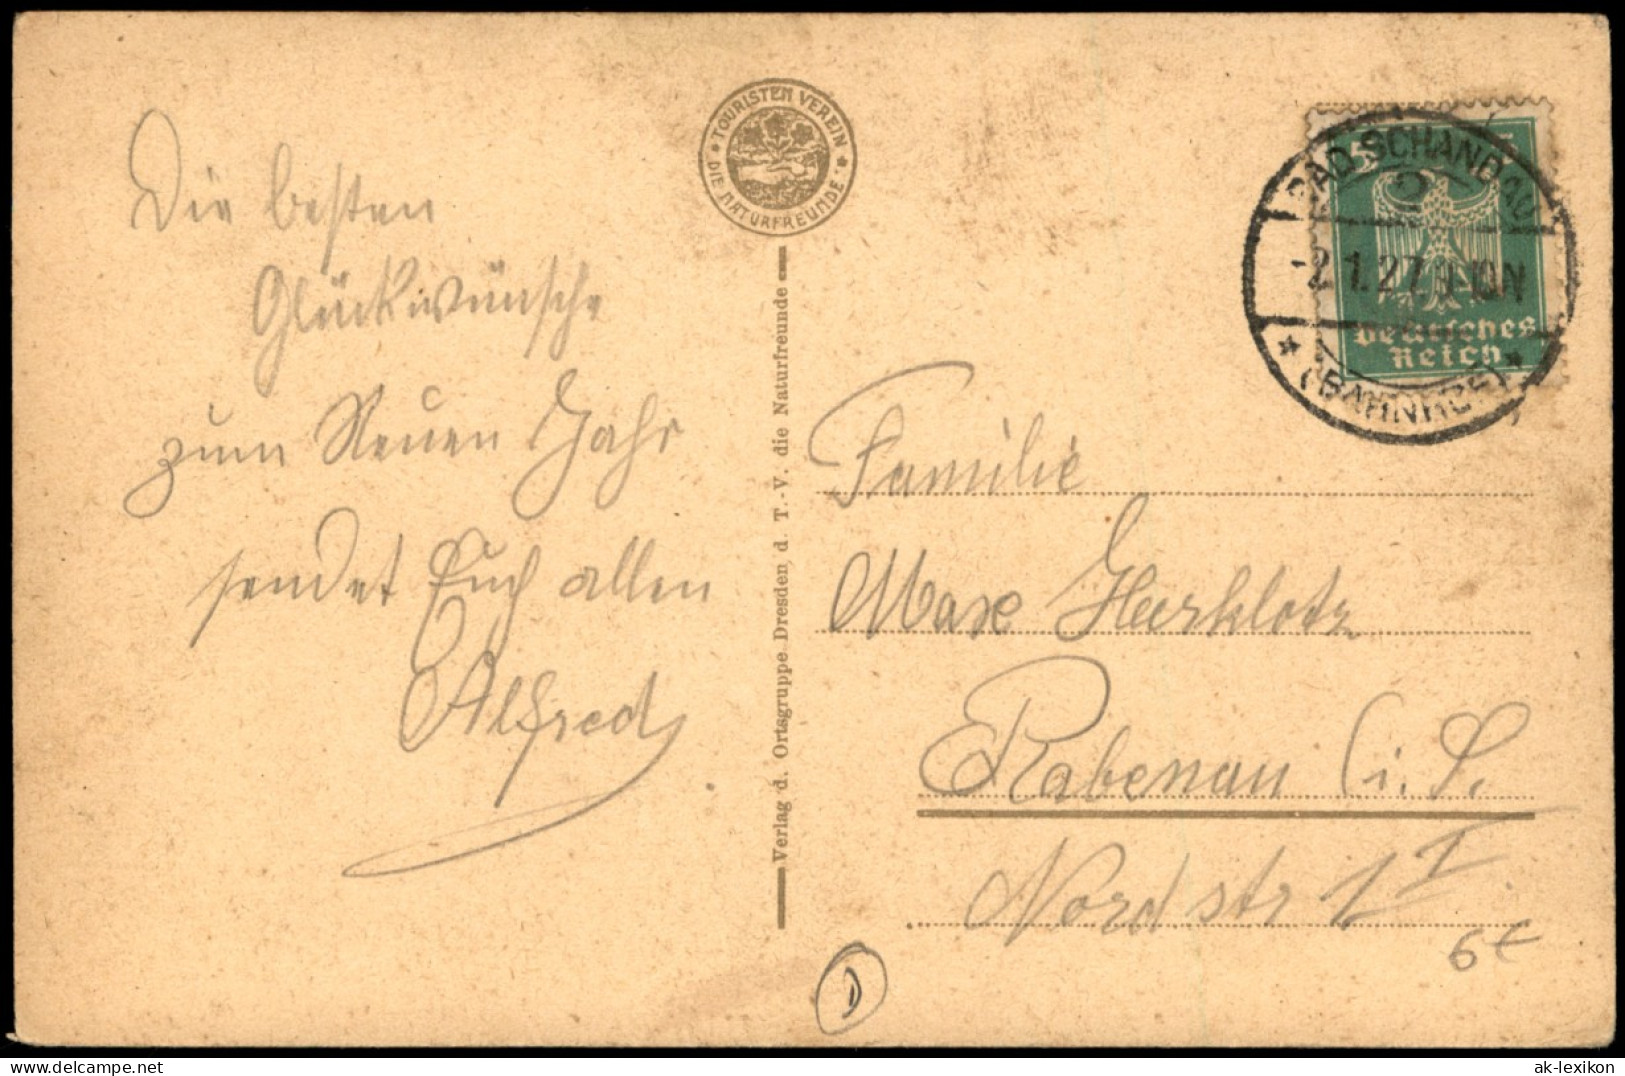 Die besten
Glückwünsche
zum Neuen Jahr
sendet Euch allen
Alfred
TOURISTEN VEREIN
* DIE NATURFREUNDE *
Verlag d. Ortsgruppe Dresden d. T.-V. die Naturfreunde
BAD SCHANDAU
2
-2.1.27. 9-10N
* (BAHNHOF) *
5
Deutsches
Reich
Familie
Max Herklotz
Rabenau i. S.
Nordstr 1 I
6€
D
ak-lexikon